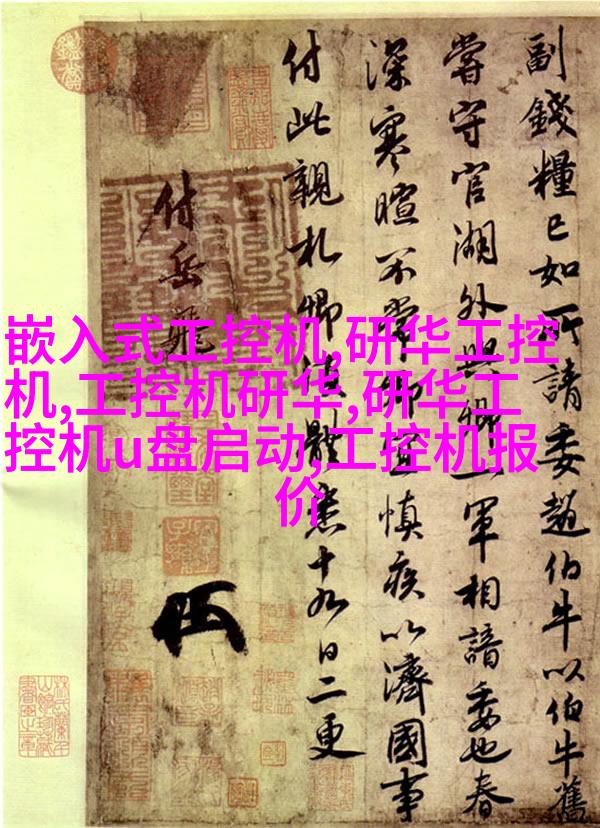 嵌入式工控机,研华工控
机,工控机研华,研华工
控机u盘启动,工控机报
价
副錢糧已如所請委趙伯牛以伯牛舊
嘗守官湖外與卿一軍相諳委也春
深寒暄不常卿宜慎疾以濟國事
付此親札卿須體悉十九日二更
付岳飛